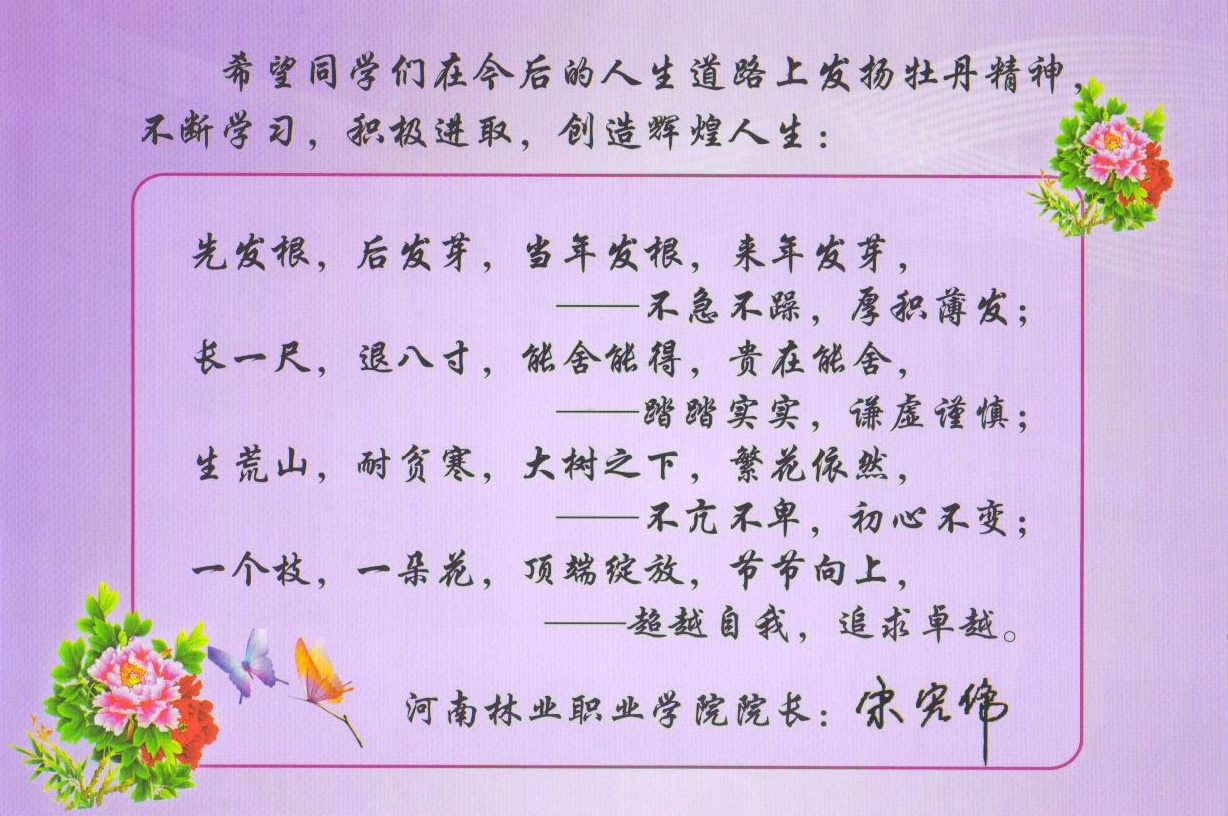 希望同学们在今后的人生道路上发扬牡丹精神，
不断学习，积极进取，创造辉煌人生：
先发根，后发芽，当年发根，来年发芽，
——不急不躁，厚积薄发；
长一尺，退八寸，能舍能得，贵在能舍，
——踏踏实实，谦虚谨慎；
生荒山，耐贫寒，大树之下，繁花依然，
——不亢不卑，初心不变；
一个枝，一朵花，顶端绽放，节节向上，
——超越自我，追求卓越。
河南林业职业学院院长：宋宏伟